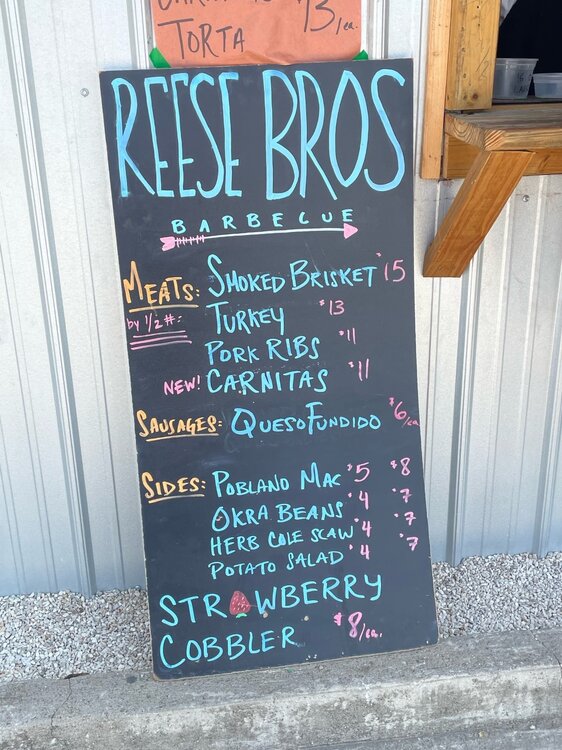 $13/ea.
TORTA
REESE BROS
BARBECUE
MEATS: SMOKED BRISKET $15
by 1/2#: TURKEY $13
PORK RIBS $11
NEW! CARNITAS $11
SAUSAGES: QUESO FUNDIDO $6/ea
SIDES: POBLANO MAC $5 $8
OKRA BEANS $4 $7
HERB COLE SLAW $4 $7
POTATO SALAD $4 $7
STRAWBERRY
COBBLER $8/ea.